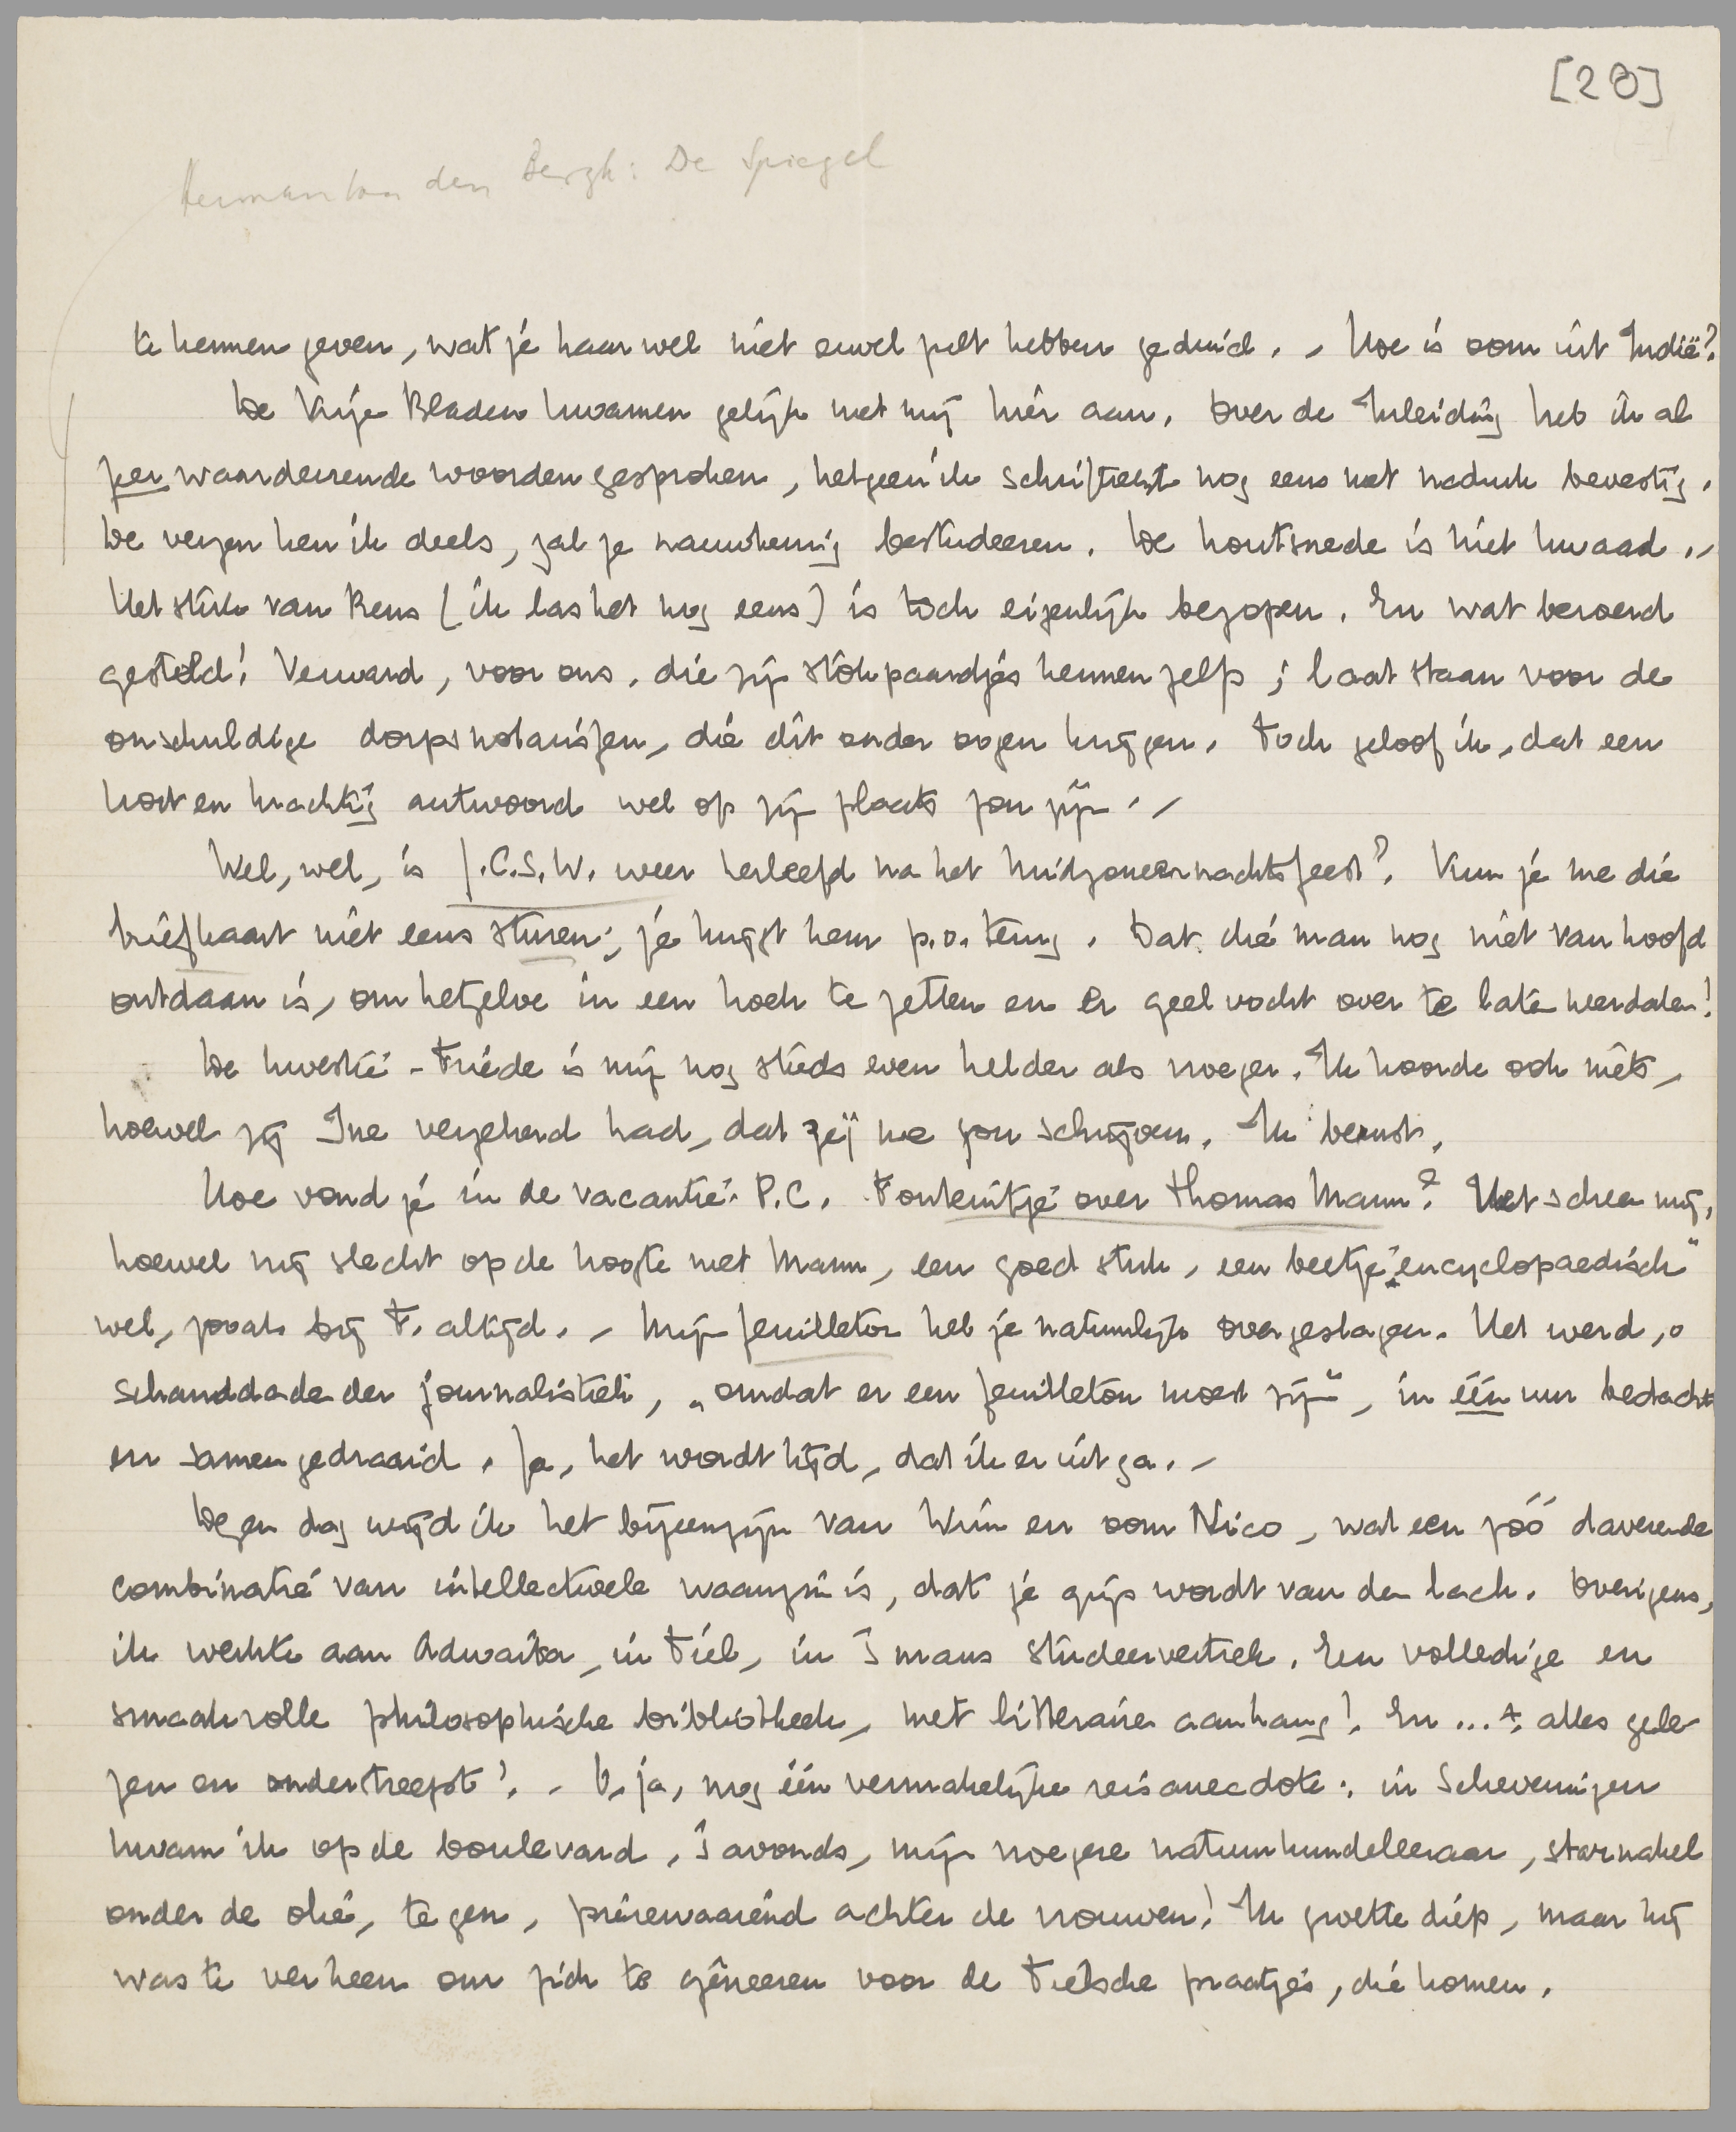 [28]
Herman van den Bergh: De Spiegel
te kennen geven, wat je haar wel niet euvel zult hebben geduid. – Hoe is oom uit Indië?
De Vrije Bladen kwamen gelijk met mij hier aan. Over de Inleiding heb ik al
zeer waardeerende woorden gesproken, hetgeen ik schriftelijk nog eens met nadruk bevestig.
De verzen ken ik deels, zal ze nauwkeurig bestudeeren. De houtsnede is niet kwaad. –
Het stuk van Rens (ik las het nog eens) is toch eigenlijk bezopen. En wat beroerd
gesteld! Verward, voor ons, die zijn stokpaardjes kennen zelfs; laat staan voor de
onschuldige dorpsnotarissen, die dit onder oogen krijgen. Toch geloof ik, dat een
kort en krachtig antwoord wel op zijn plaats zou zijn. –
Wel, wel, is J.C.S.W. weer herleefd na het Midzomernachtsfeest? Kun je me die
briefkaart niet eens sturen; je krijgt hem p.o. terug. Dat die man nog niet van hoofd
ontdaan is, om hetzelve in een hoek te zetten en er geel vocht over te laten neerdalen!
De kwestie-Friede is mij nog steeds even helder als vroeger. Ik hoorde ook niets,
hoewel zij Ine verzekerd had, dat zij me zou schrijven. Ik berust.
Hoe vond je in de vacantie-P.C. Fonteintje over Thomas Mann? Het scheen mij,
hoewel mij slecht op de hoogte met Mann, een goed stuk, een beetje „encyclopaedisch"
wel, zooals bij F. altijd. – Mijn feuilleton heb je natuurlijk overgeslagen. Het werd, o
schanddade der journalistiek, „omdat er een feuilleton moest zijn", in één uur bedacht
en samengedraaid. Ja, het wordt tijd, dat ik er uit ga. –
Dezen dag wijd ik het bijeenzijn van Wim en oom Nico, wat een zóó daverende
combinatie van intellectueele waanzin is, dat je grijs wordt van den lach. Overigens,
ik werkte aan Adwaita, in Tiel, in 's mans studeervertrek. Een volledige en
smaakvolle philosophische bibliotheek, met litteraire aanhang! En ... alles gele-
zen en onderstreept! – O, ja, nog één vermakelijke reisanecdote: in Scheveningen
kwam ik op de boulevard, 's avonds, mijn vroegere natuurkundeleeraar, starnakel
onder de olie, tegen, zwaaiend achter de vrouwen! Ik groette diep, maar hij
was te ver heen om zich te gêneeren voor de Tielsche praatjes, die komen.